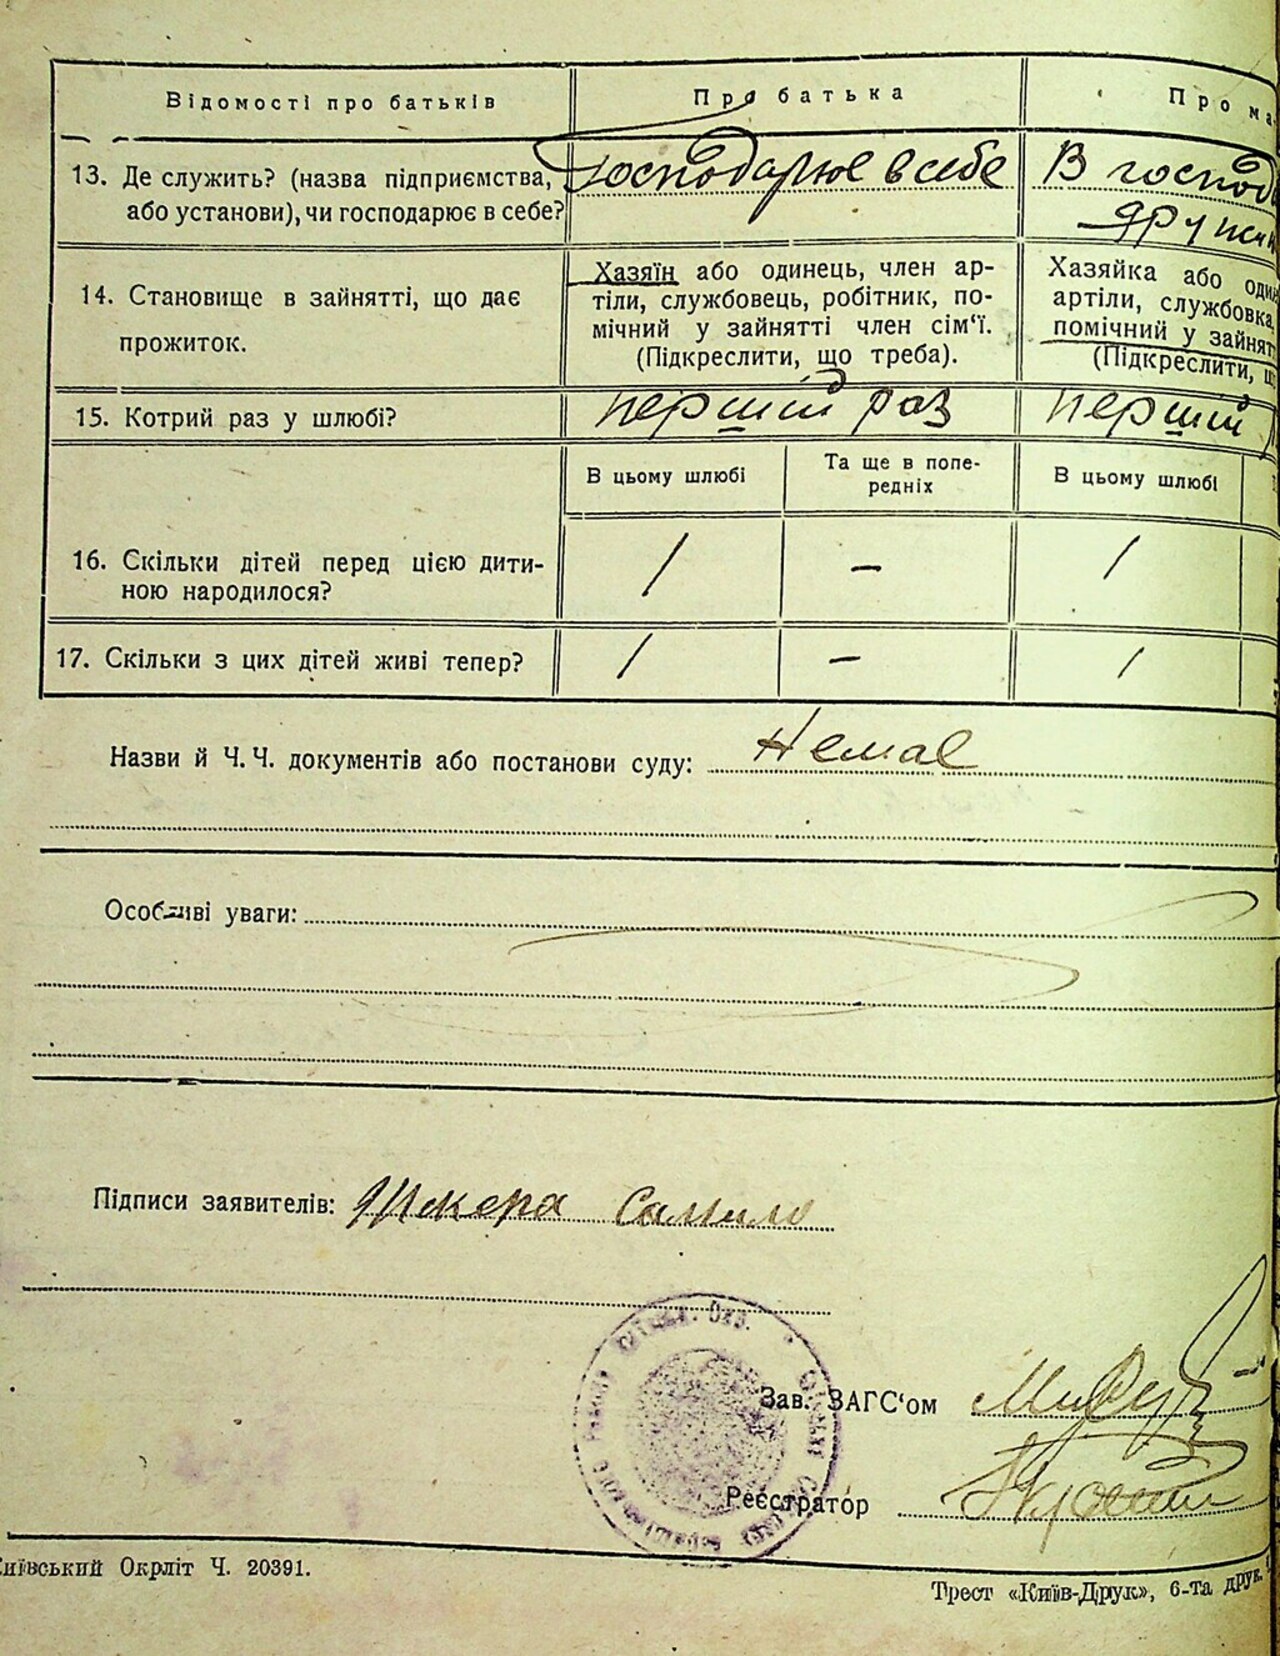 Відомості про батьків
Про батька
Про ма
13. Де служить? (назва підприємства,
або установи), чи господарює в себе?
господарює в себе
В господ
14. Становище в зайнятті, що дає
прожиток.
Хазяїн або одинець, член ар-
тіли, службовець, робітник, по-
мічний у зайнятті член сім‘ї.
(Підкреслити, що треба).
Хазяйка або один
артіли, службовка,
помічний у зайнят
(Підкреслити, щ
15. Котрий раз у шлюбі?
перший раз
перший
В цьому шлюбі
Та ще в попе-
редніх
В цьому шлюбі
16. Скільки дітей перед цією дити-
ною народилося?
/
–
/
17. Скільки з цих дітей живі тепер?
/
–
/
Назви й Ч. Ч. документів або постанови суду: Немає
Особливі уваги:
Підписи заявителів:
Зав. ЗАГС‘ом
Реєстратор
Київський Окрліт Ч. 20391.
Трест «Київ-Друк», 6-та друк.